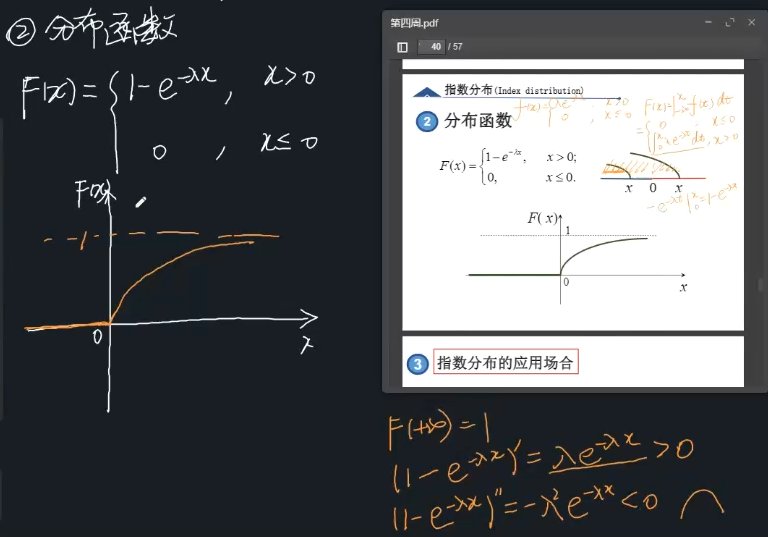 ② 分布函数
F(x)= { 1-e^{-λx} , x>0
0 , x≤0
F(x)
1
0
x
第四周.pdf
40 / 57
指数分布(Index distribution)
f(x)={ λe^{-λx} , x>0
0 , x≤0
F(x)=∫_{-∞}^{x} f(t)dt
={ 0 , x≤0
∫_0^x λe^{-λt}dt , x>0
2 分布函数
F(x)= { 1-e^{-λx}, x>0;
0, x≤0.
x 0 x
-e^{-λt}|_0^x=1-e^{-λx}
F( x)
1
0
x
3 指数分布的应用场合
F(+∞)=1
(1-e^{-λx})'=λe^{-λx}>0
(1-e^{-λx})''=-λ²e^{-λx}<0